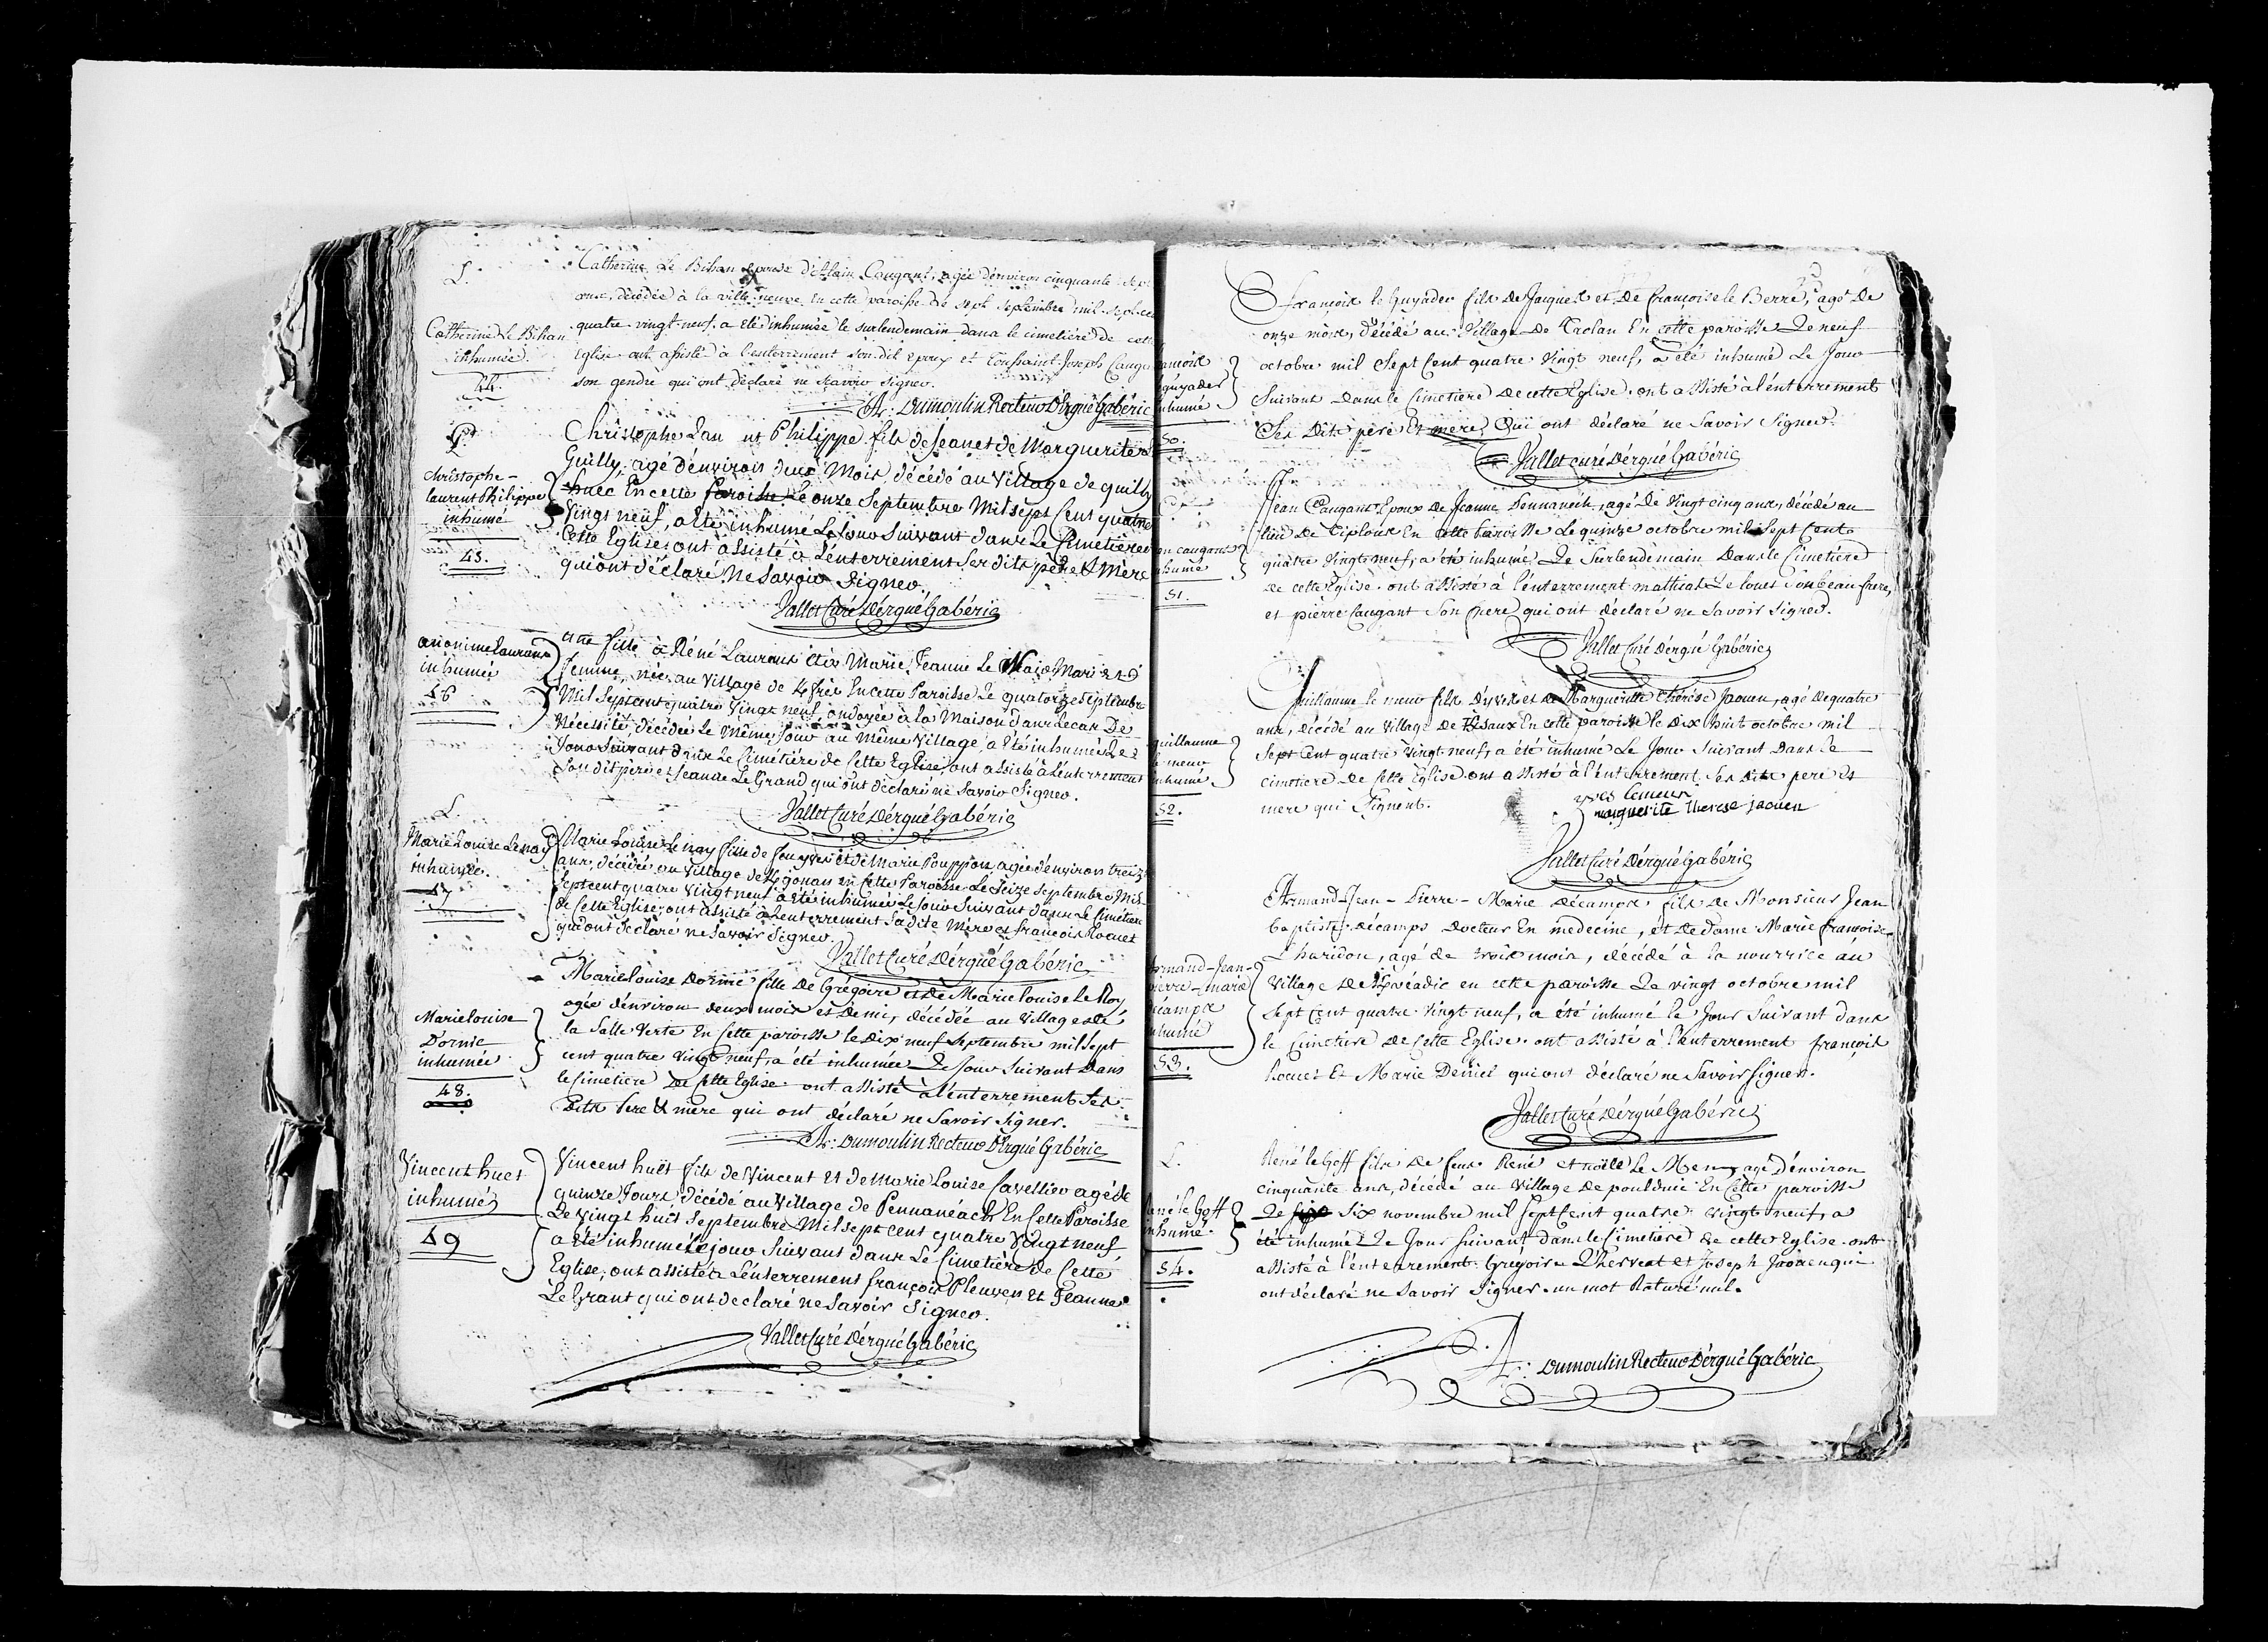 L.
Catherine Le Bihan
inhumée.
44.
Catherine Le Bihan epouse d'Alain Caugant, agée d'environ cinquante sept
ans, décédée à la ville neuve en cette paroisse le sept septembre mil sept ce
quatre vingt neuf, a été inhumée le surlendemain dans le cimetiere de cett
Eglise ont assisté à l'enterrement son dit Epoux et Toussaint Joseph Cauga
son gendre qui ont déclaré ne scavoir signer.
A: Dumoulin Recteur D'Ergué Gabéric
christophe-
laurent Philippe
inhumé
45.
Christophe Lau nt Philippe fils de Jean et de Marguerite
Guilly, agé d'environ deux Mois, décédé au Village de quilly
huec En cette paroisse le onze Septembre Mil sept Cent quatre
Vingt neuf, a été inhumé Le Jour Suivant dans Le Cimetière
Cette Eglise; ont assisté à L'enterrement Ses dits père & Mère
qui ont déclaré Ne Savoir Signer.
Vallet Curé D'érgué Gabéric
anonime Laurans
inhumée
46
une fille à Réné Laurans et à Marie Jeanne Le
femme, née au Village de En cette Paroisse Le quatorze Septembre
Mil Sept cent quatre Vingt neuf, ondoyée à la Maison dans Le cas De
Nécessité, décédée Le Même Jour au Même Village, a été inhumée Le
Jour Suivant dans Le Cimetière de Cette Eglise, ont assisté à L'enterrement
Son dit père et Jeanne Le Grand qui ont déclaré ne Savoir Signer.
Vallet Curé D'érgué Gabéric
L.
Marie Louise Le nay
inhumée.
47
Marie Louise Le nay fille de feu yves et de Marie Pouppon agée d'environ treize
ans, décédée au Village de en Cette Paroisse Le Seize Septembre Mil
Sept cent quatre Vingt neuf a été inhumée Le Jour Suivant dans Le Cimetière
de Cette Eglise; ont assisté à L'enterrement Sa dite Mere et francois Rocuet
qui ont déclaré ne Savoir Signer
Vallet Curé D'érgué Gabéric
Marie louise
Dornic
inhumée
48.
Marie louise Dornic fille De Grégoire et De Marie louise Le Roy
agée d'environ deux mois et Demi, décédée au Village de
la Salle Verte En Cette paroisse le Dix neuf Septembre mil Sept
cent quatre vingt neuf, a été inhumée Le Jour Suivant Dans
le Cimetiere De Cette Eglise. ont assisté à l'enterrement Ses
Dits Pere & mere qui ont déclaré ne Savoir Signer.
A: Dumoulin Recteur D'Ergué Gabéric
Vincent huet
inhumé
49
Vincent huët fils de Vincent et de Marie Louise Cavellier agé de
quinze Jours, décédé au Village de Pennanéach En Cette Paroisse
Le Vingt huit Septembre Mil sept cent quatre Vingt neuf
a été inhumé Le jour Suivant dans Le Cimetière de Cette
Eglise, ont assisté à L'enterrement françois Pleuven et Jeanne
Le Grant qui ont declaré ne Savoir Signer.
Vallet Curé D'érgué Gabéric
ançois
guyader
nhumé
50.
François le Guyader fils de Jacques et De Françoise le Berre, agé De
onze mois, Décédé au Village De En cette paroisse Le neuf
octobre mil Sept Cent quatre Vingt neuf, a été inhumé Le Jour
Suivant Dans le Cimetiere De cette Eglise. ont assisté à l'enterrement
Ses Dits père Et mere, Qui ont déclaré ne Savoir Signer.
Vallet curé D'érgué Gabéric
an caugant
nhumé
51.
Jean Caugant Epoux De Jeanne Pennanech, agé De Vingt cinq ans, décédé au
lieu De En Cette Paroisse Le quinze octobre mil Sept Cent
quatre Vingt neuf, a été inhumé Le Surlendemain Dans le Cimetiere
De cette Eglise. ont assisté à l'enterrement mathias Le Son beau frere,
et pierre Caugant Son frere, qui ont déclaré ne Savoir Signer.
Vallet Curé D'érgué Gabéric
guillaume
e meur
nhumé
52.
Guillaume le meur fils d'yves et de Marguerite thérése Jaouen, agé De quatre
ans, Décédé au Village De En cette paroisse le Dix huit octobre mil
Sept Cent quatre Vingt neuf, a été inhumé Le Jour Suivant Dans Le
cimetiere De Cette Eglise ont assisté à l'enterrement Ses Dits pere Et
mere qui Signent.
yves Lemeur
marguerite therese jaouen
Vallet Curé D'érgué Gabéric
rmand-Jean-
ierre-marie
écamps
nhumé
53.
Armand-Jean-Pierre-Marie Décamps, fils De Monsieur Jean
baptiste Décamps Docteur En medecine, et De Dame Marie françoise
L'haridon, agé de trois mois, décédé à la nourrice au
Village De en cette paroisse Le vingt octobre mil
Sept Cent quatre Vingt neuf, a été inhumé le Jour Suivant dans
le Cimetiere De Cette Eglise. ont assisté à l'enterrement françois
Rocuet Et Marie Deniel qui ont déclaré ne Savoir Signer.
Vallet Curé D'érgué Gabéric
L.
ené le Goff
nhumé.
54.
René le Goff fils De feus René et noëlle Le Men, agé D'environ
cinquante ans, décédé au Village De poulduic En Cette paroisse
Le Six novembre mil Sept Cent quatre vingt neuf, a
été inhumé Le Jour Suivant dans le Cimetiere de cette Eglise. ont
assisté à l'enterrement Grégoire L'hervéat et Joseph qui
ont déclaré ne Savoir Signer. un mot Raturé nul.
A: Dumoulin Recteur D'érgué Gabéric